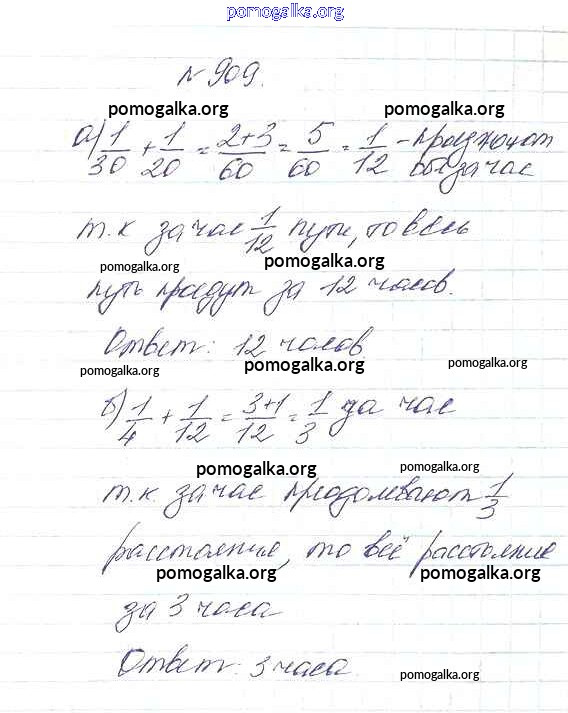 pomogalka.org
№ 909.
pomogalka.org pomogalka.org
а) 1/30 + 1/20 = 2+3/60 = 5/60 = 1/12 –
бы за час
pomogalka.org pomogalka.org
т.к за час 1/12 пути, то весь
pomogalka.org pomogalka.org
путь проедут за 12 часов.
Ответ: 12 часов
pomogalka.org pomogalka.org pomogalka.org
б) 1/4 + 1/12 = 3+1/12 = 1/3 за час
pomogalka.org pomogalka.org
т.к. за час преодолевают 1/3
pomogalka.org pomogalka.org
расстояния, то всё расстояние
pomogalka.org pomogalka.org
за 3 часа
Ответ: 3 часа.
pomogalka.org pomogalka.org